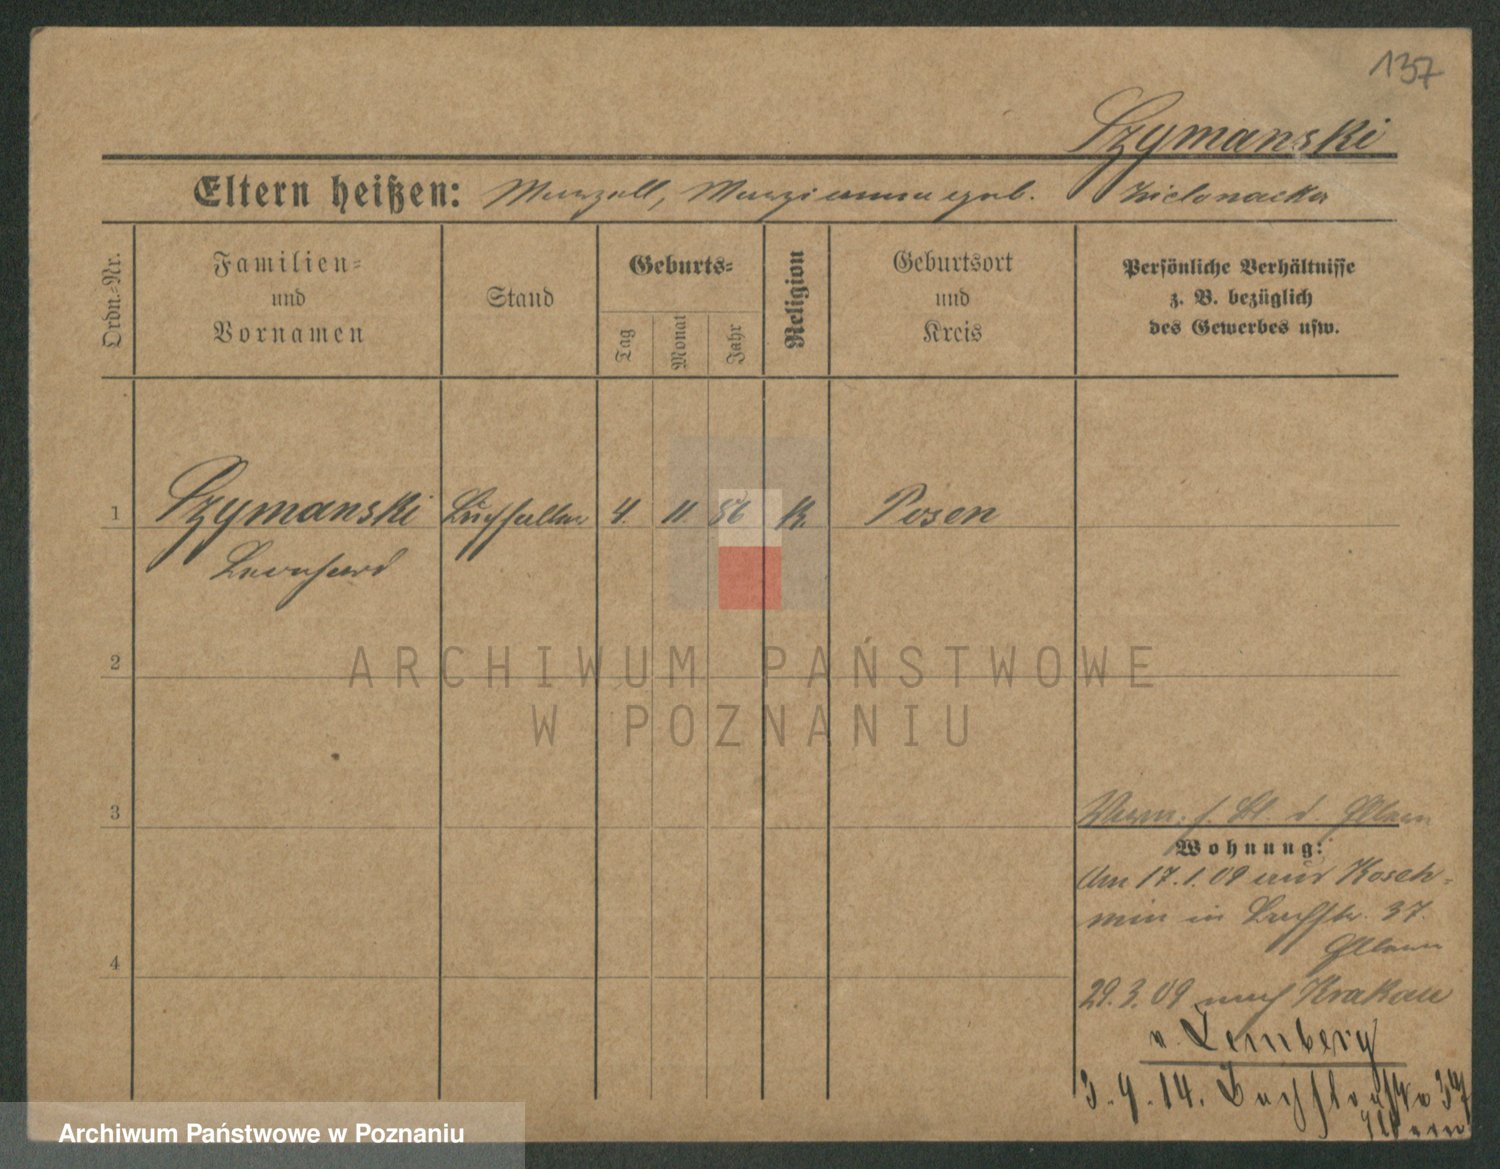 137
Szymanski
Eltern heißen: Marzell, Marzianna geb. Zielonacka
Ordn.-Nr.
Familien=
und
Vornamen
Stand
Geburts=
Tag
Monat
Jahr
Religion
Geburtsort
und
Kreis
Persönliche Verhältnisse
z. B. bezüglich
des Gewerbes usw.
1 Szymanski 4. 11 56 k. Posen
Leonhard
2
3
Wohnung:
Am 17.1.09 aus Kosch-
min in 37.
4
29.3.09 nach Krakau
v. Lemberg
14. 37
ARCHIWUM PAŃSTWOWE
W POZNANIU
Archiwum Państwowe w Poznaniu